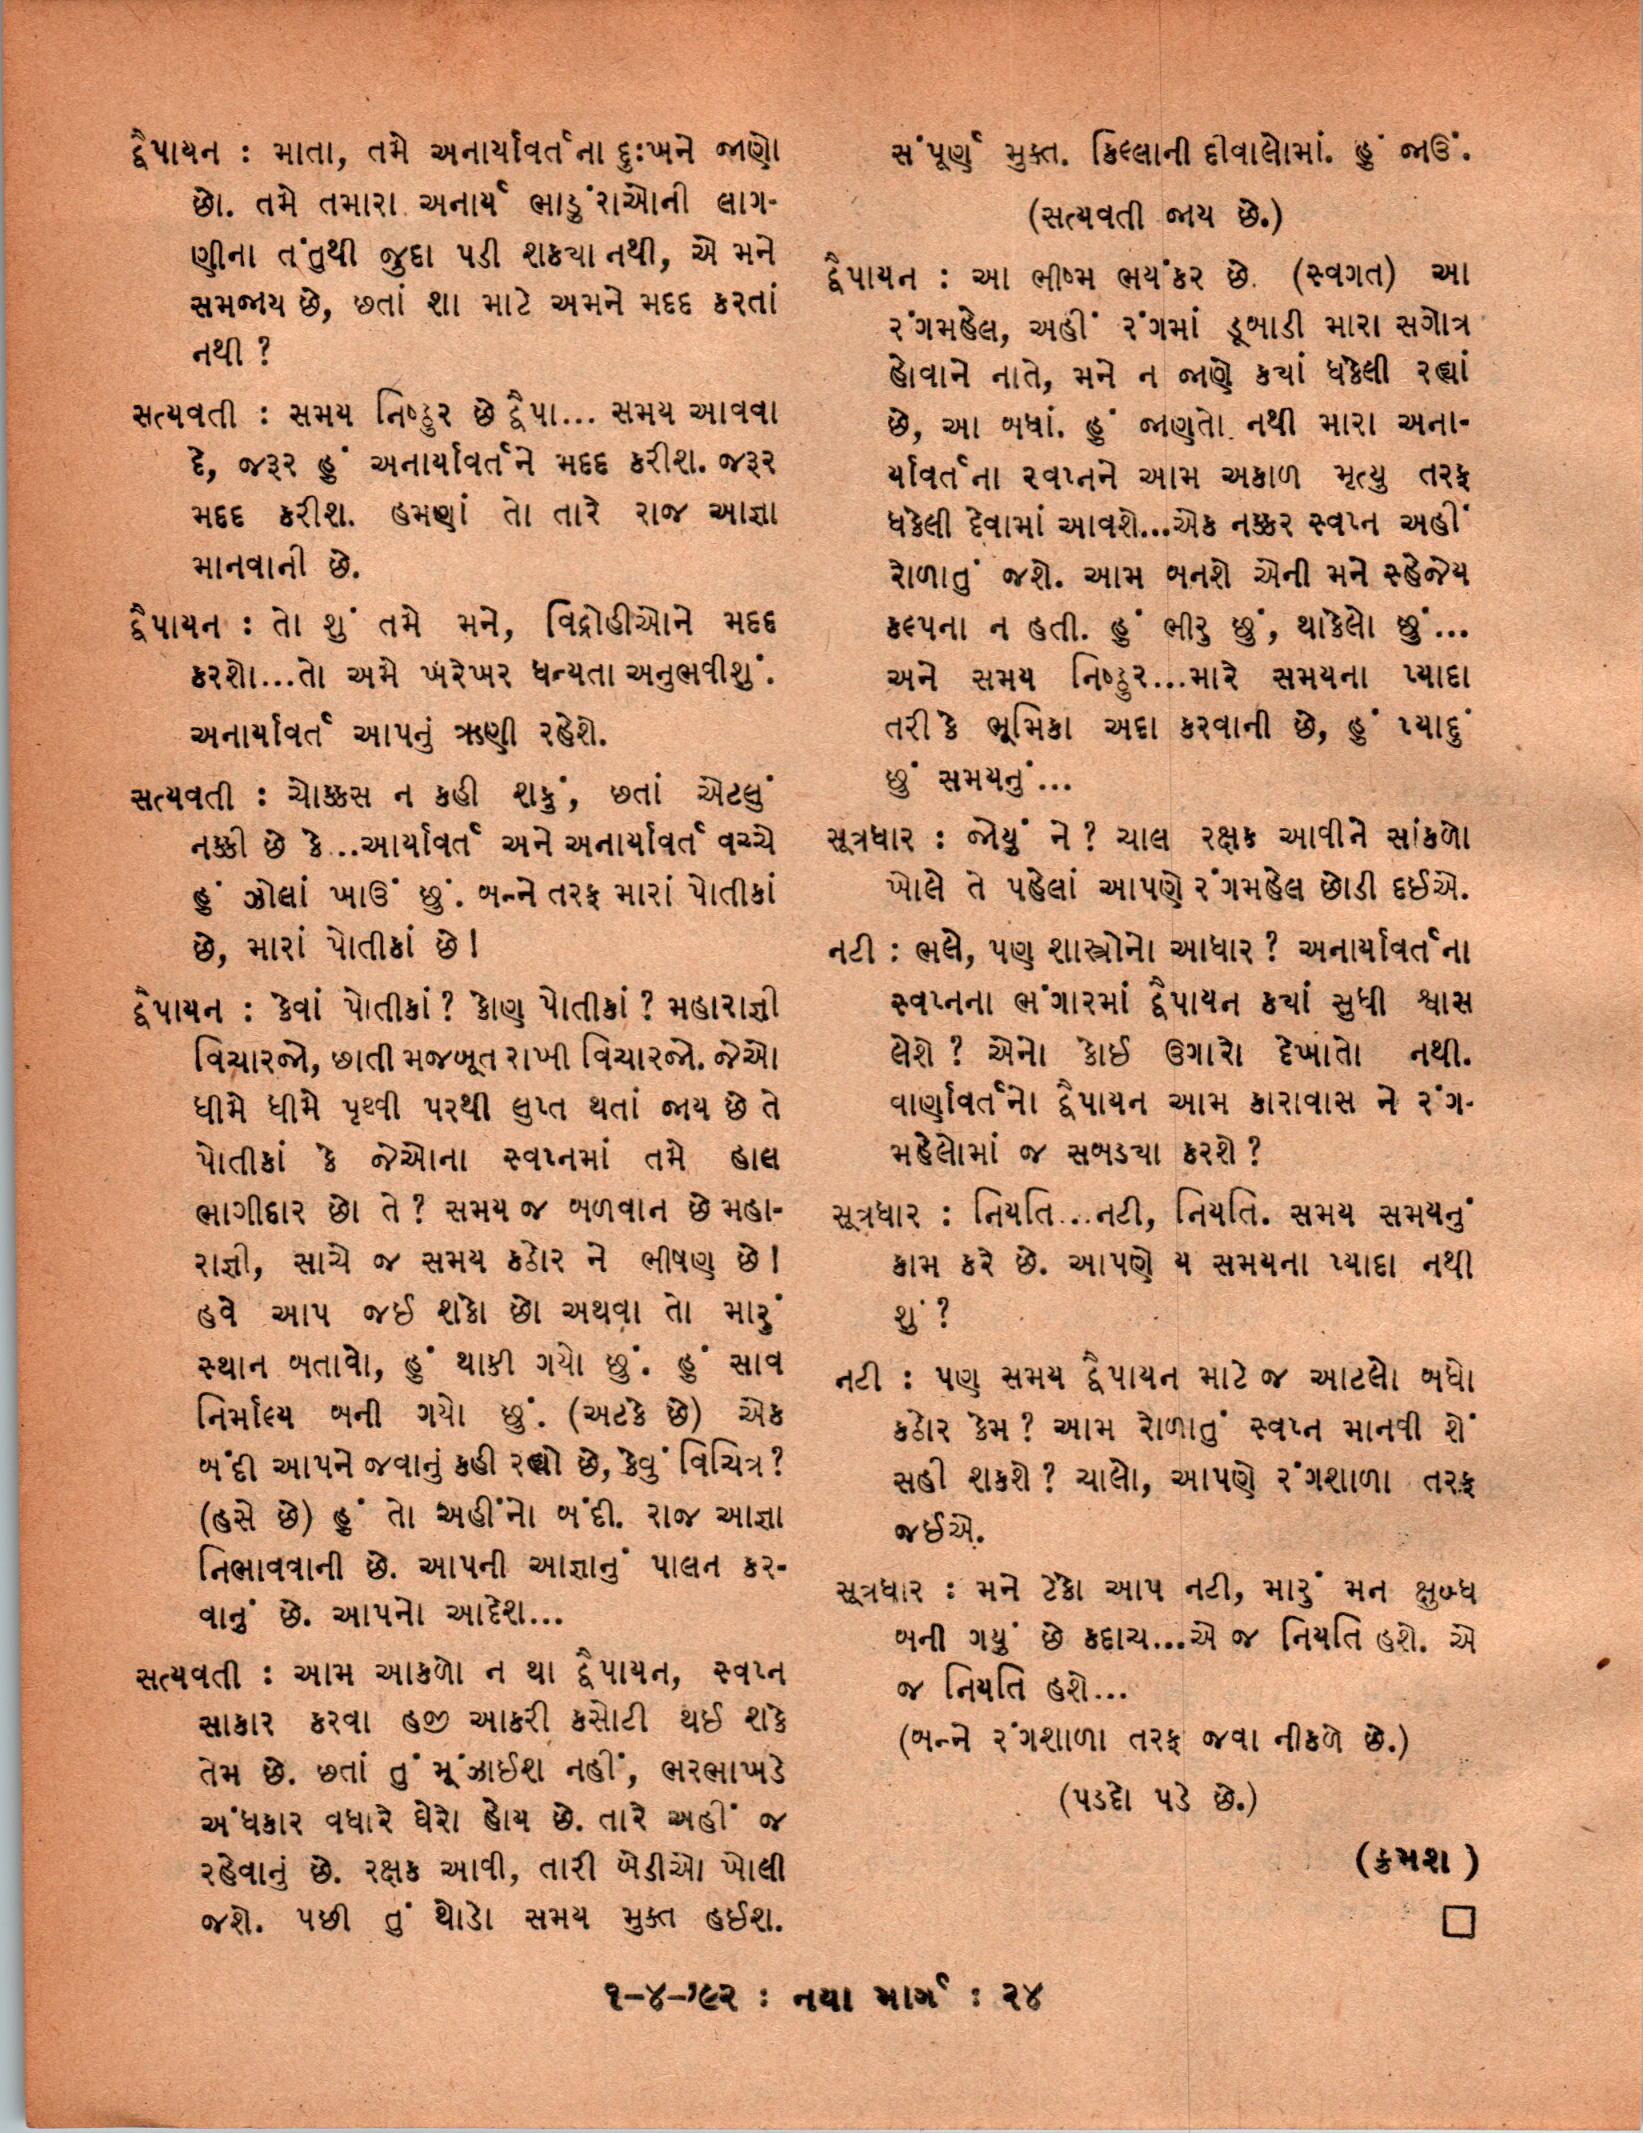 દ્વૈપાયન : માતા, તમે અનાર્યાવર્તના દુઃખને જાણો
છો. તમે તમારા અનાર્ય ભાડુંરાઓની લાગ-
ણીના તંતુથી જુદા પડી શકયા નથી, એ મને
સમજાય છે, છતાં શા માટે અમને મદદ કરતાં
નથી ?
સત્યવતી : સમય નિષ્ઠુર છે દ્વૈપા... સમય આવવા
દે, જરૂર હું અનાર્યાવર્તને મદદ કરીશ. જરૂર
મદદ કરીશ. હમણાં તો તારે રાજ આજ્ઞા
માનવાની છે.
દ્વૈપાયન : તો શું તમે મને, વિદ્રોહીઓને મદદ
કરશો...તો અમે ખરેખર ધન્યતા અનુભવીશું.
અનાર્યાવર્ત આપનું ઋણી રહેશે.
સત્યવતી : ચોક્કસ ન કહી શકું, છતાં એટલું
નક્કી છે કે...આર્યાવર્ત અને અનાર્યાવર્ત વચ્ચે
હું ઝોલાં ખાઉં છું. બન્ને તરફ મારાં પોતીકાં
છે, મારાં પોતીકાં છે !
દ્વૈપાયન : કેવાં પોતીકાં ? કોણ પોતીકાં ? મહારાજ્ઞી
વિચારજો, છાતી મજબૂત રાખી વિચારજો. જેઓ
ધીમે ધીમે પૃથ્વી પરથી લુપ્ત થતાં જાય છે તે
પોતીકાં કે જેઓના સ્વપ્નમાં તમે હાલ
ભાગીદાર છો તે ? સમય જ બળવાન છે મહા-
રાજ્ઞી, સાચે જ સમય કઠોર ને ભીષણ છે !
હવે આપ જઈ શકો છો અથવા તો મારું
સ્થાન બતાવો, હું થાકી ગયો છું. હું સાવ
નિર્માલ્ય બની ગયો છું. (અટકે છે) એક
બંદી આપને જવાનું કહી રહ્યો છે, કેવું વિચિત્ર ?
(હસે છે) હું તો અહીંનો બંદી. રાજ આજ્ઞા
નિભાવવાની છે. આપની આજ્ઞાનું પાલન કર-
વાનું છે. આપનો આદેશ...
સત્યવતી : આમ આકળો ન થા દ્વૈપાયન, સ્વપ્ન
સાકાર કરવા હજી આકરી કસોટી થઈ શકે
તેમ છે. છતાં તું મૂંઝાઈશ નહીં, ભરભાખડે
અંધકાર વધારે ઘેરો હોય છે. તારે અહીં જ
રહેવાનું છે. રક્ષક આવી, તારી બેડીઓ ખોલી
જશે. પછી તું થોડો સમય મુક્ત હઈશ.
સંપૂર્ણ મુક્ત. કિલ્લાની દીવાલોમાં. હું જાઉં.
(સત્યવતી જાય છે.)
દ્વૈપાયન : આ ભીષ્મ ભયંકર છે. (સ્વગત) આ
રંગમહેલ, અહીં રંગમાં ડૂબાડી મારા સગોત્ર
હોવાને નાતે, મને ન જાણે કયાં ધકેલી રહ્યાં
છે, આ બધાં. હું જાણતો નથી મારા અના-
ર્યાવર્તના સ્વપ્નને આમ અકાળ મૃત્યુ તરફ
ધકેલી દેવામાં આવશે...એક નક્કર સ્વપ્ન અહીં
રોળાતું જશે. આમ બનશે એની મને સ્હેજેય
કલ્પના ન હતી. હું ભીરુ છું, થાકેલો છું...
અને સમય નિષ્ઠુર...મારે સમયના પ્યાદા
તરીકે ભૂમિકા અદા કરવાની છે, હું પ્યાદું
છું સમયનું...
સૂત્રધાર : જોયું ને ? ચાલ રક્ષક આવીને સાંકળો
ખોલે તે પહેલાં આપણે રંગમહેલ છોડી દઈએ.
નટી : ભલે, પણ શાસ્ત્રોનો આધાર ? અનાર્યાવર્તના
સ્વપ્નના ભંગારમાં દ્વૈપાયન કયાં સુધી શ્વાસ
લેશે ? એનો કોઈ ઉગારો દેખાતો નથી.
વાર્ણાવર્તનો દ્વૈપાયન આમ કારાવાસ ને રંગ-
મહેલોમાં જ સબડયા કરશે ?
સૂત્રધાર : નિયતિ...નટી, નિયતિ. સમય સમયનું
કામ કરે છે. આપણે ય સમયના પ્યાદા નથી
શું ?
નટી : પણ સમય દ્વૈપાયન માટે જ આટલો બધો
કઠોર કેમ ? આમ રોળાતું સ્વપ્ન માનવી શેં
સહી શકશે ? ચાલો, આપણે રંગશાળા તરફ
જઈએ.
સૂત્રધાર : મને ટેકો આપ નટી, મારું મન ક્ષુબ્ધ
બની ગયું છે કદાચ...એ જ નિયતિ હશે. એ
જ નિયતિ હશે...
(બન્ને રંગશાળા તરફ જવા નીકળે છે.)
(પડદો પડે છે.)
(ક્રમશ )
૧-૪-'૯૨ : નયા માર્ગ : ૨૪